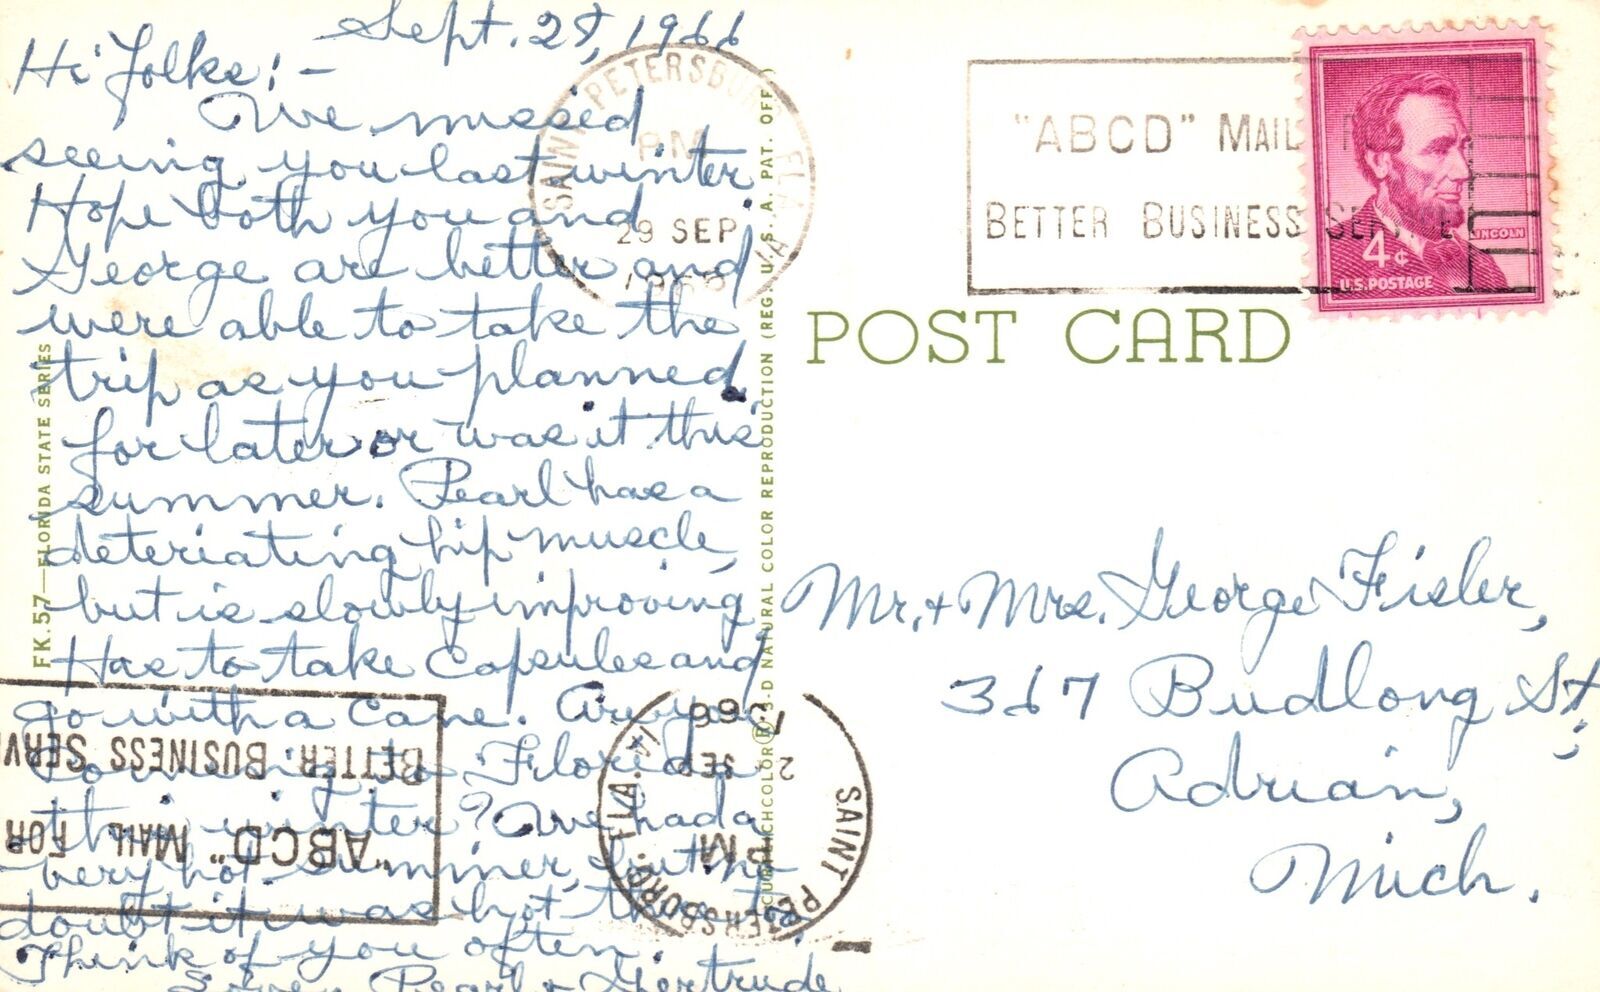 Sept. 28, 1966
Hi Folks! -
We missed
seeing you last winter
Hope both you and
George are better and
were able to take the
trip as you planned
for later or was it this
summer. Pearl has a
deteriating hip muscle,
but is slowly improving
Has to take capsules and
go with a cane. Are you
coming to Florida
this winter? We had a
very hot summer, but no
doubt it was hot there too.
Think of you often.
Love, Pearl & Gertrude
FK.57—FLORIDA STATE SERIES
CURTEICHCOLOR® 3-D NATURAL COLOR REPRODUCTION (REG. U.S.A. PAT. OFF.)
SAINT PETERSBURG FLA
PM
29 SEP
1966
"ABCD" MAIL
BETTER BUSINESS SERVICE
LINCOLN
4¢
U.S. POSTAGE
POST CARD
Mr. & Mrs. George Fisler,
367 Budlong St.,
Adrian,
Mich.
"ABCD" MAIL FOR
BETTER BUSINESS SERV
SAINT PETERSBURG, FLA.
PM
SEP